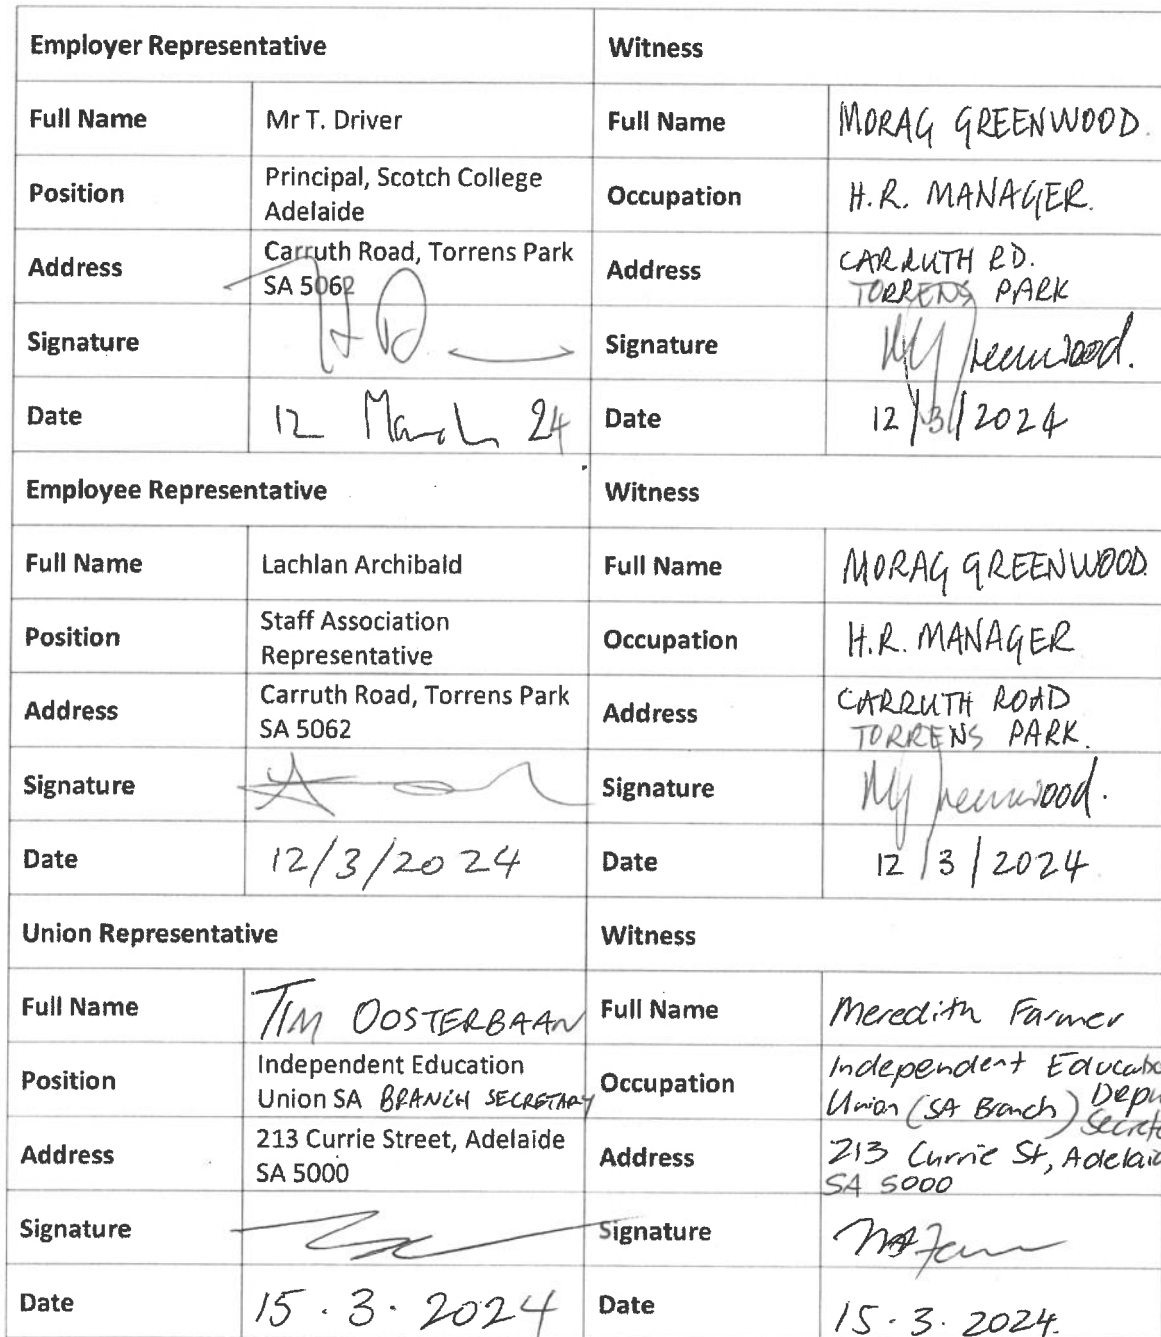 Employer Representative Witness
Full Name Mr T. Driver Full Name MORAG GREENWOOD.
Position Principal, Scotch College
Adelaide Occupation H.R. MANAGER.
Address Carruth Road, Torrens Park
SA 5062 Address CARRUTH RD.
TORRENS PARK
Signature Signature
Date 12 March 24 Date 12/3/2024
Employee Representative Witness
Full Name Lachlan Archibald Full Name MORAG GREENWOOD
Position Staff Association
Representative Occupation H.R. MANAGER
Address Carruth Road, Torrens Park
SA 5062 Address CARRUTH ROAD
TORRENS PARK.
Signature Signature
Date 12/3/2024 Date 12/3/2024
Union Representative Witness
Full Name TIM OOSTERBAAN Full Name Meredith Farmer
Position Independent Education
Union SA BRANCH SECRETARY Occupation Independent Educatio
Union (SA Branch) Depu
Secreta
Address 213 Currie Street, Adelaide
SA 5000 Address 213 Currie St, Adelaid
SA 5000
Signature Signature
Date 15.3.2024 Date 15.3.2024.